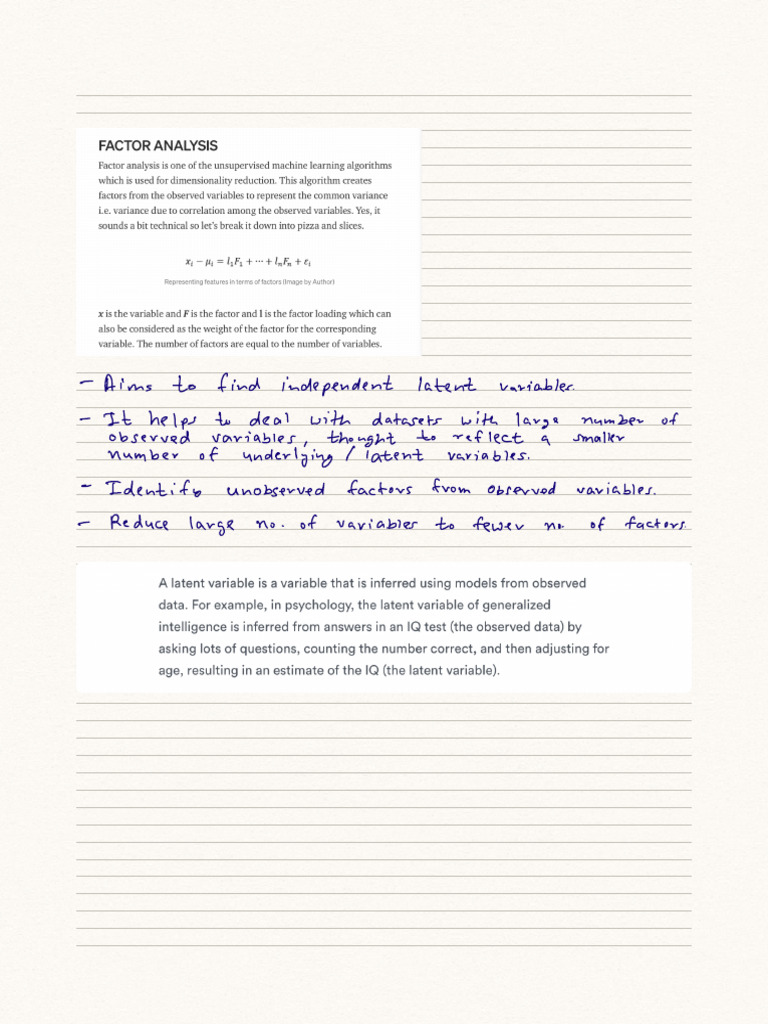 FACTOR ANALYSIS
Factor analysis is one of the unsupervised machine learning algorithms
which is used for dimensionality reduction. This algorithm creates
factors from the observed variables to represent the common variance
i.e. variance due to correlation among the observed variables. Yes, it
sounds a bit technical so let's break it down into pizza and slices.
xᵢ − μᵢ = l₁F₁ + ⋯ + lₙFₙ + εᵢ
Representing features in terms of factors (Image by Author)
x is the variable and F is the factor and l is the factor loading which can
also be considered as the weight of the factor for the corresponding
variable. The number of factors are equal to the number of variables.
- Aims to find independent latent variables.
- It helps to deal with datasets with large number of
observed variables, thought to reflect a smaller
number of underlying / latent variables.
- Identify unobserved factors from observed variables.
- Reduce large no. of variables to fewer no. of factors.
A latent variable is a variable that is inferred using models from observed
data. For example, in psychology, the latent variable of generalized
intelligence is inferred from answers in an IQ test (the observed data) by
asking lots of questions, counting the number correct, and then adjusting for
age, resulting in an estimate of the IQ (the latent variable).